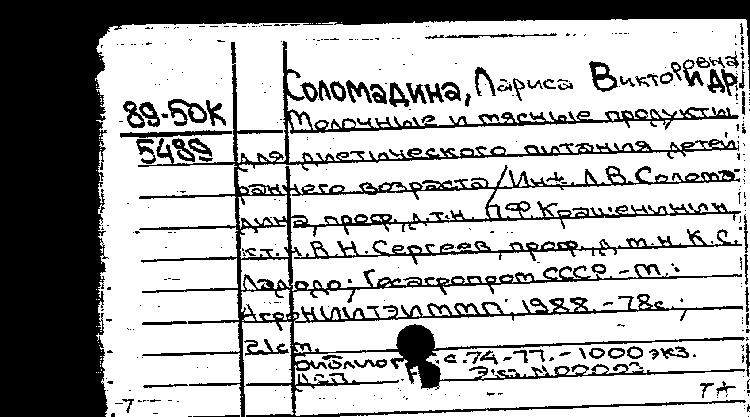 Соломадина, Лариса Викторовна и др.
89-50К
Молочные и мясные продукты
5489
для диетического питания детей
раннего возраста / Инж. Л.В. Солома-
дина, проф., д.т.н. П.Ф. Крашенинин,
к.т.н. В.Н. Сергеев, проф., д.т.н. К.С.
Ладодо; Госагропром СССР. - М.:
АгроНИИТЭИММП, 1988. - 78с.;
21см.
Библиогр.: с.74-77. - 1000 экз.
Деп.
Экз. N00003.
7
ТА